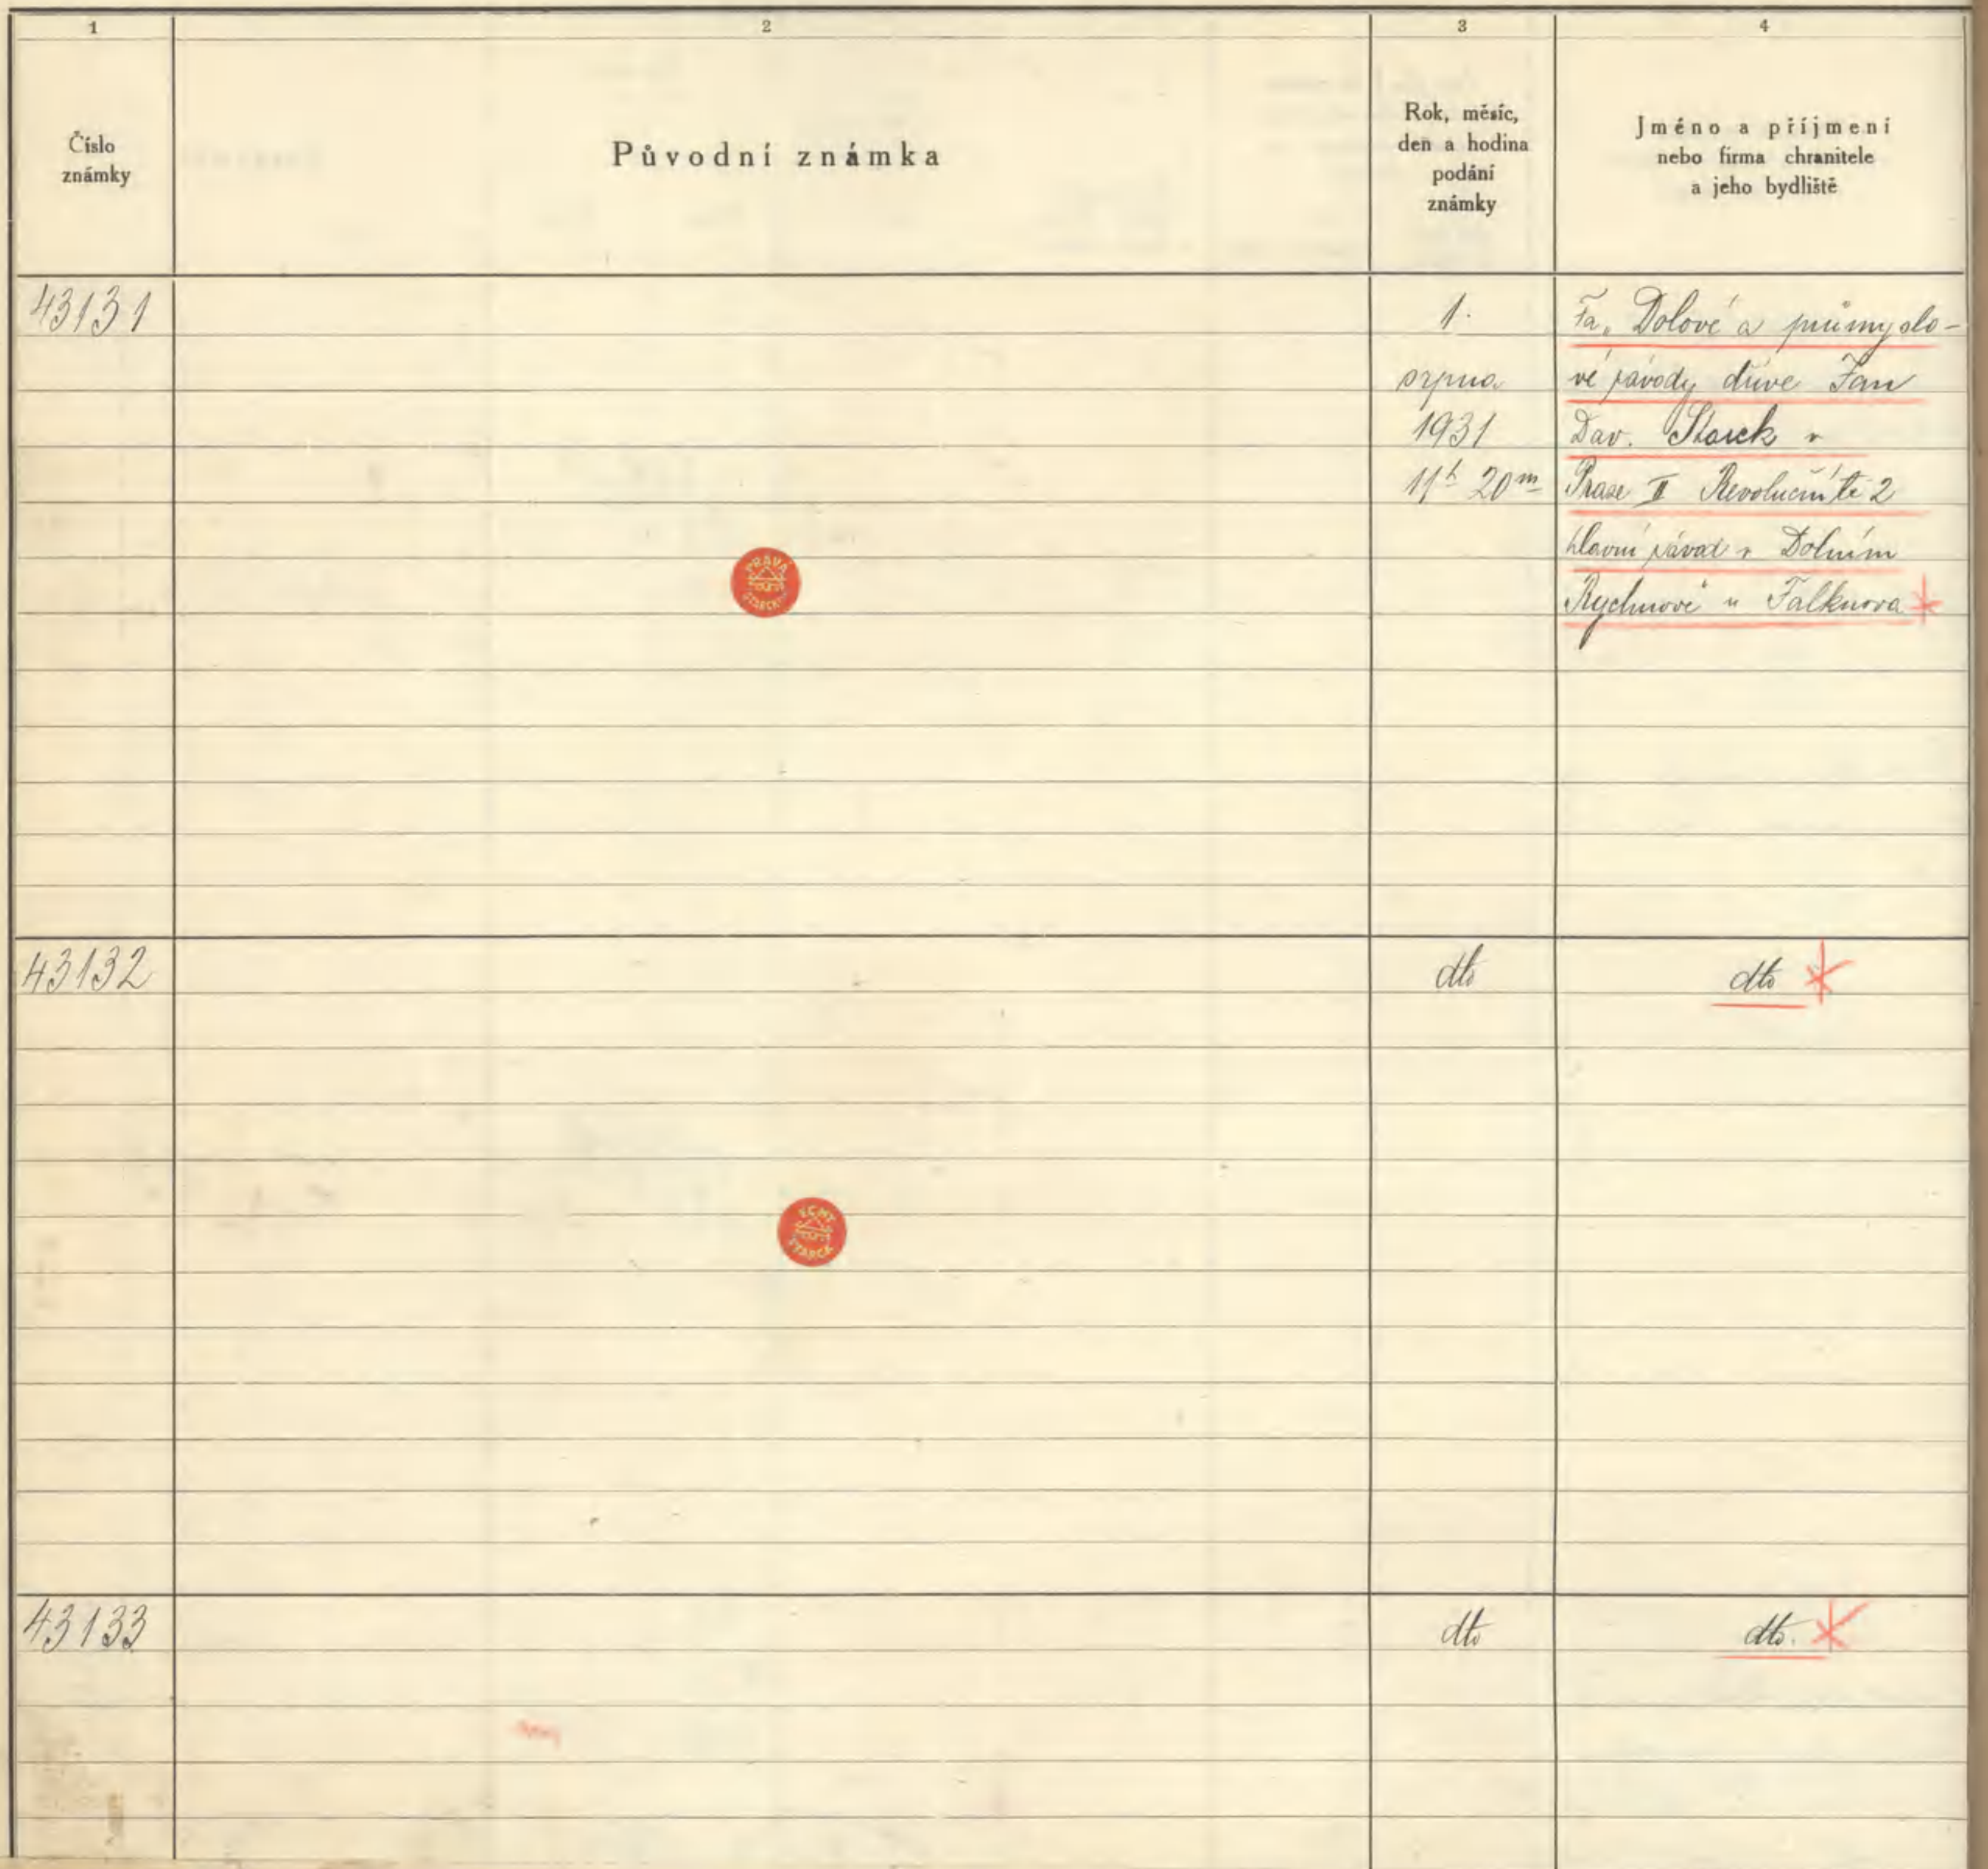 1
2
3
4
Číslo
známky
Původní známka
Rok, měsíc,
den a hodina
podání
známky
Jméno a příjmení
nebo firma chranitele
a jeho bydliště
43131
1.
srpna
1931
11h 20m
Fa. Dolové a průmyslo-
vé závody dříve Jan
Dav. Starck v
Praze II Revoluční tř 2
hlavní závod v Dolním
Rychnově u Falknova
PRAVÁ
43132
dto
dto
ECHT
STARCK
43133
dto
dto.